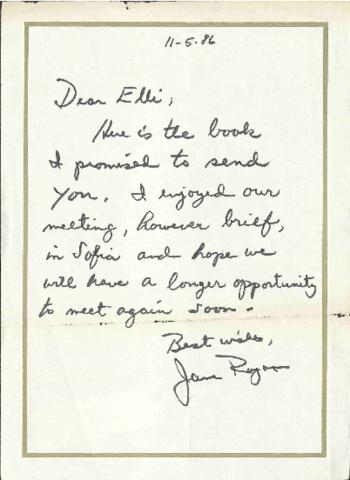 11-5-86
Dear Elli,
Here is the book
I promised to send
you. I enjoyed our
meeting, however brief,
in Sofia and hope we
will have a longer opportunity
to meet again soon.
Best wishes,
Jane